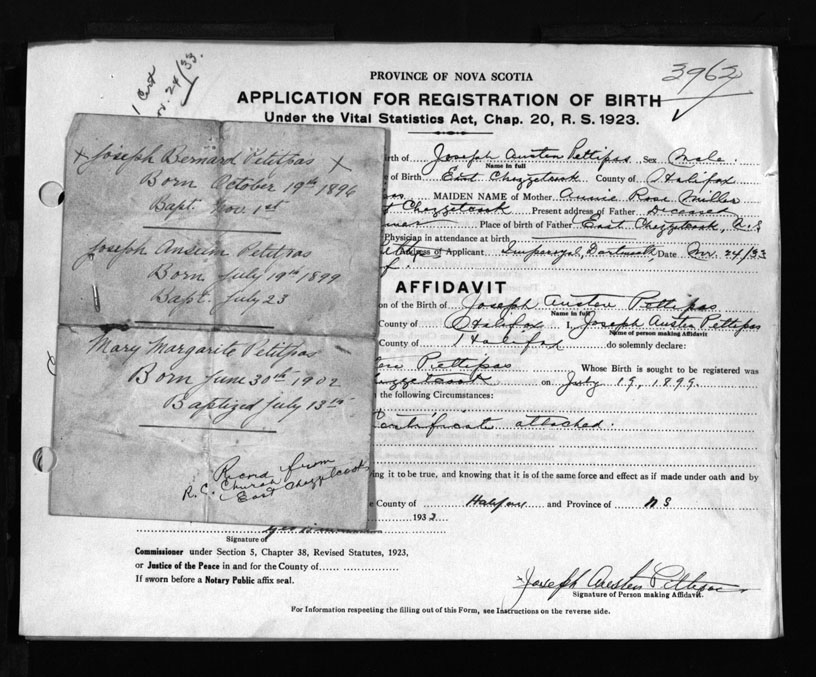 3962
1 Cert
Nov. 24/33.
PROVINCE OF NOVA SCOTIA
APPLICATION FOR REGISTRATION OF BIRTH
Under the Vital Statistics Act, Chap. 20, R. S. 1923.
x Joseph Bernard Petitpas x
Born October 19th 1896
Bapt. Nov. 1st
Joseph Anselm Petitpas
Born July 19th 1899
Bapt. July 23
Mary Margarite Petitpas
Born June 30th 1902
Baptized July 13th
Record from
R.C. Church
East Chezzetcook
Birth of Joseph Austen Pettipas Sex Male.
Name in full
of Birth East Chezzetcook County of Halifax
MAIDEN NAME of Mother Annie Rose Miller
Chezzetcook Present address of Father Deceased
Place of birth of Father East Chezzetcook, N.S
Physician in attendance at birth
Address of Applicant Imperoyal, Dartmouth, Date Nov. 24/33
AFFIDAVIT
on of the Birth of Joseph Austen Pettipas
Name in full
County of Halifax I, Joseph Austen Pettipas
Name of person making Affidavit
County of Halifax do solemnly declare:
Pettipas Whose Birth is sought to be registered was
Chezzetcook on July 19, 1899.
the following Circumstances:
Certificate attached.
ing it to be true, and knowing that it is of the same force and effect as if made under oath and by
County of Halifax and Province of N S
193
Signature of
Commissioner under Section 5, Chapter 38, Revised Statutes, 1923,
or Justice of the Peace in and for the County of
If sworn before a Notary Public affix seal.
Joseph Austen Pettipas
Signature of Person making Affidavit.
For Information respecting the filling out of this Form, see Instructions on the reverse side.